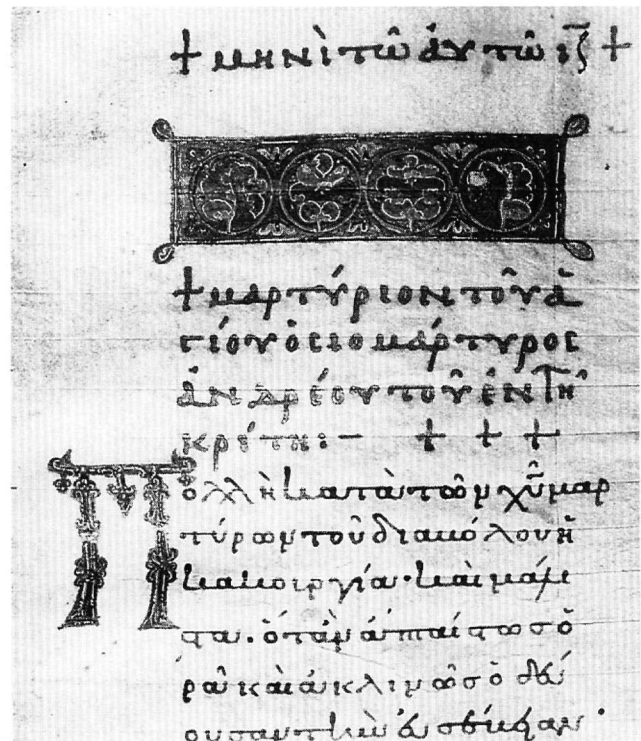 + μηνὶ τῶ αὐτῶ ιζ +
+ μαρτύριον τοῦ ἁ
γίου ὁσιομάρτυροσ
ἀνδρέου τοῦ ἐν τῆ
κρίτη:— + + +
Πολλὴ κατὰ τῶν χυ μαρ
τύρων τοῦ διαβόλου ἡ
κακουργία· καὶ μάλι
στα· ὅταν ἀπταίστωσ ὁ
ρᾶ καὶ ἀκλινῶσ ὁδεύ
ουσαν